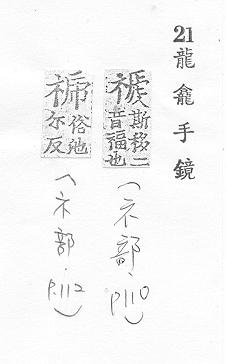 21 龍龕手鏡
禠斯移二音福也
(ネ部、P110)
俗池尔反
(ネ部.P.112)